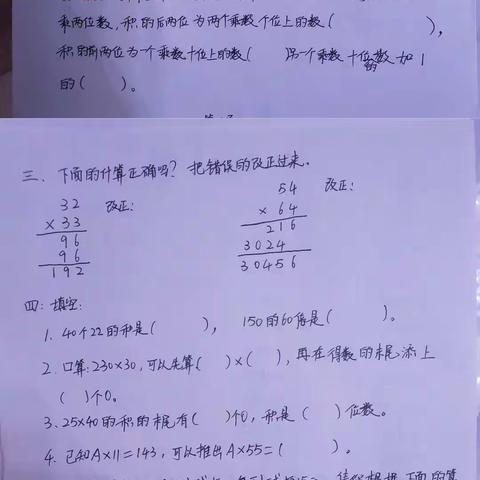 乘两位数,积的后两位为两个乘数个位上的数(　　),
积的前两位为一个乘数十位上的数(　　另一个乘数十位数加1
的
的(　　)。
三、下面的计算正确吗?把错误的改正过来。
32 改正:
×33
96
96
192
54 改正:
×64
216
3024
30456
四:填空:
1. 40个22的和是(　　), 150的60倍是(　　)。
2. 口算:230×30,可以先算(　　)×(　　),再在得数的末尾添上
(　　)个0。
3. 25×40的积的末尾有(　　)个0,积是(　　)位数。
4. 已知A×11=143,可以推出A×55=(　　)。